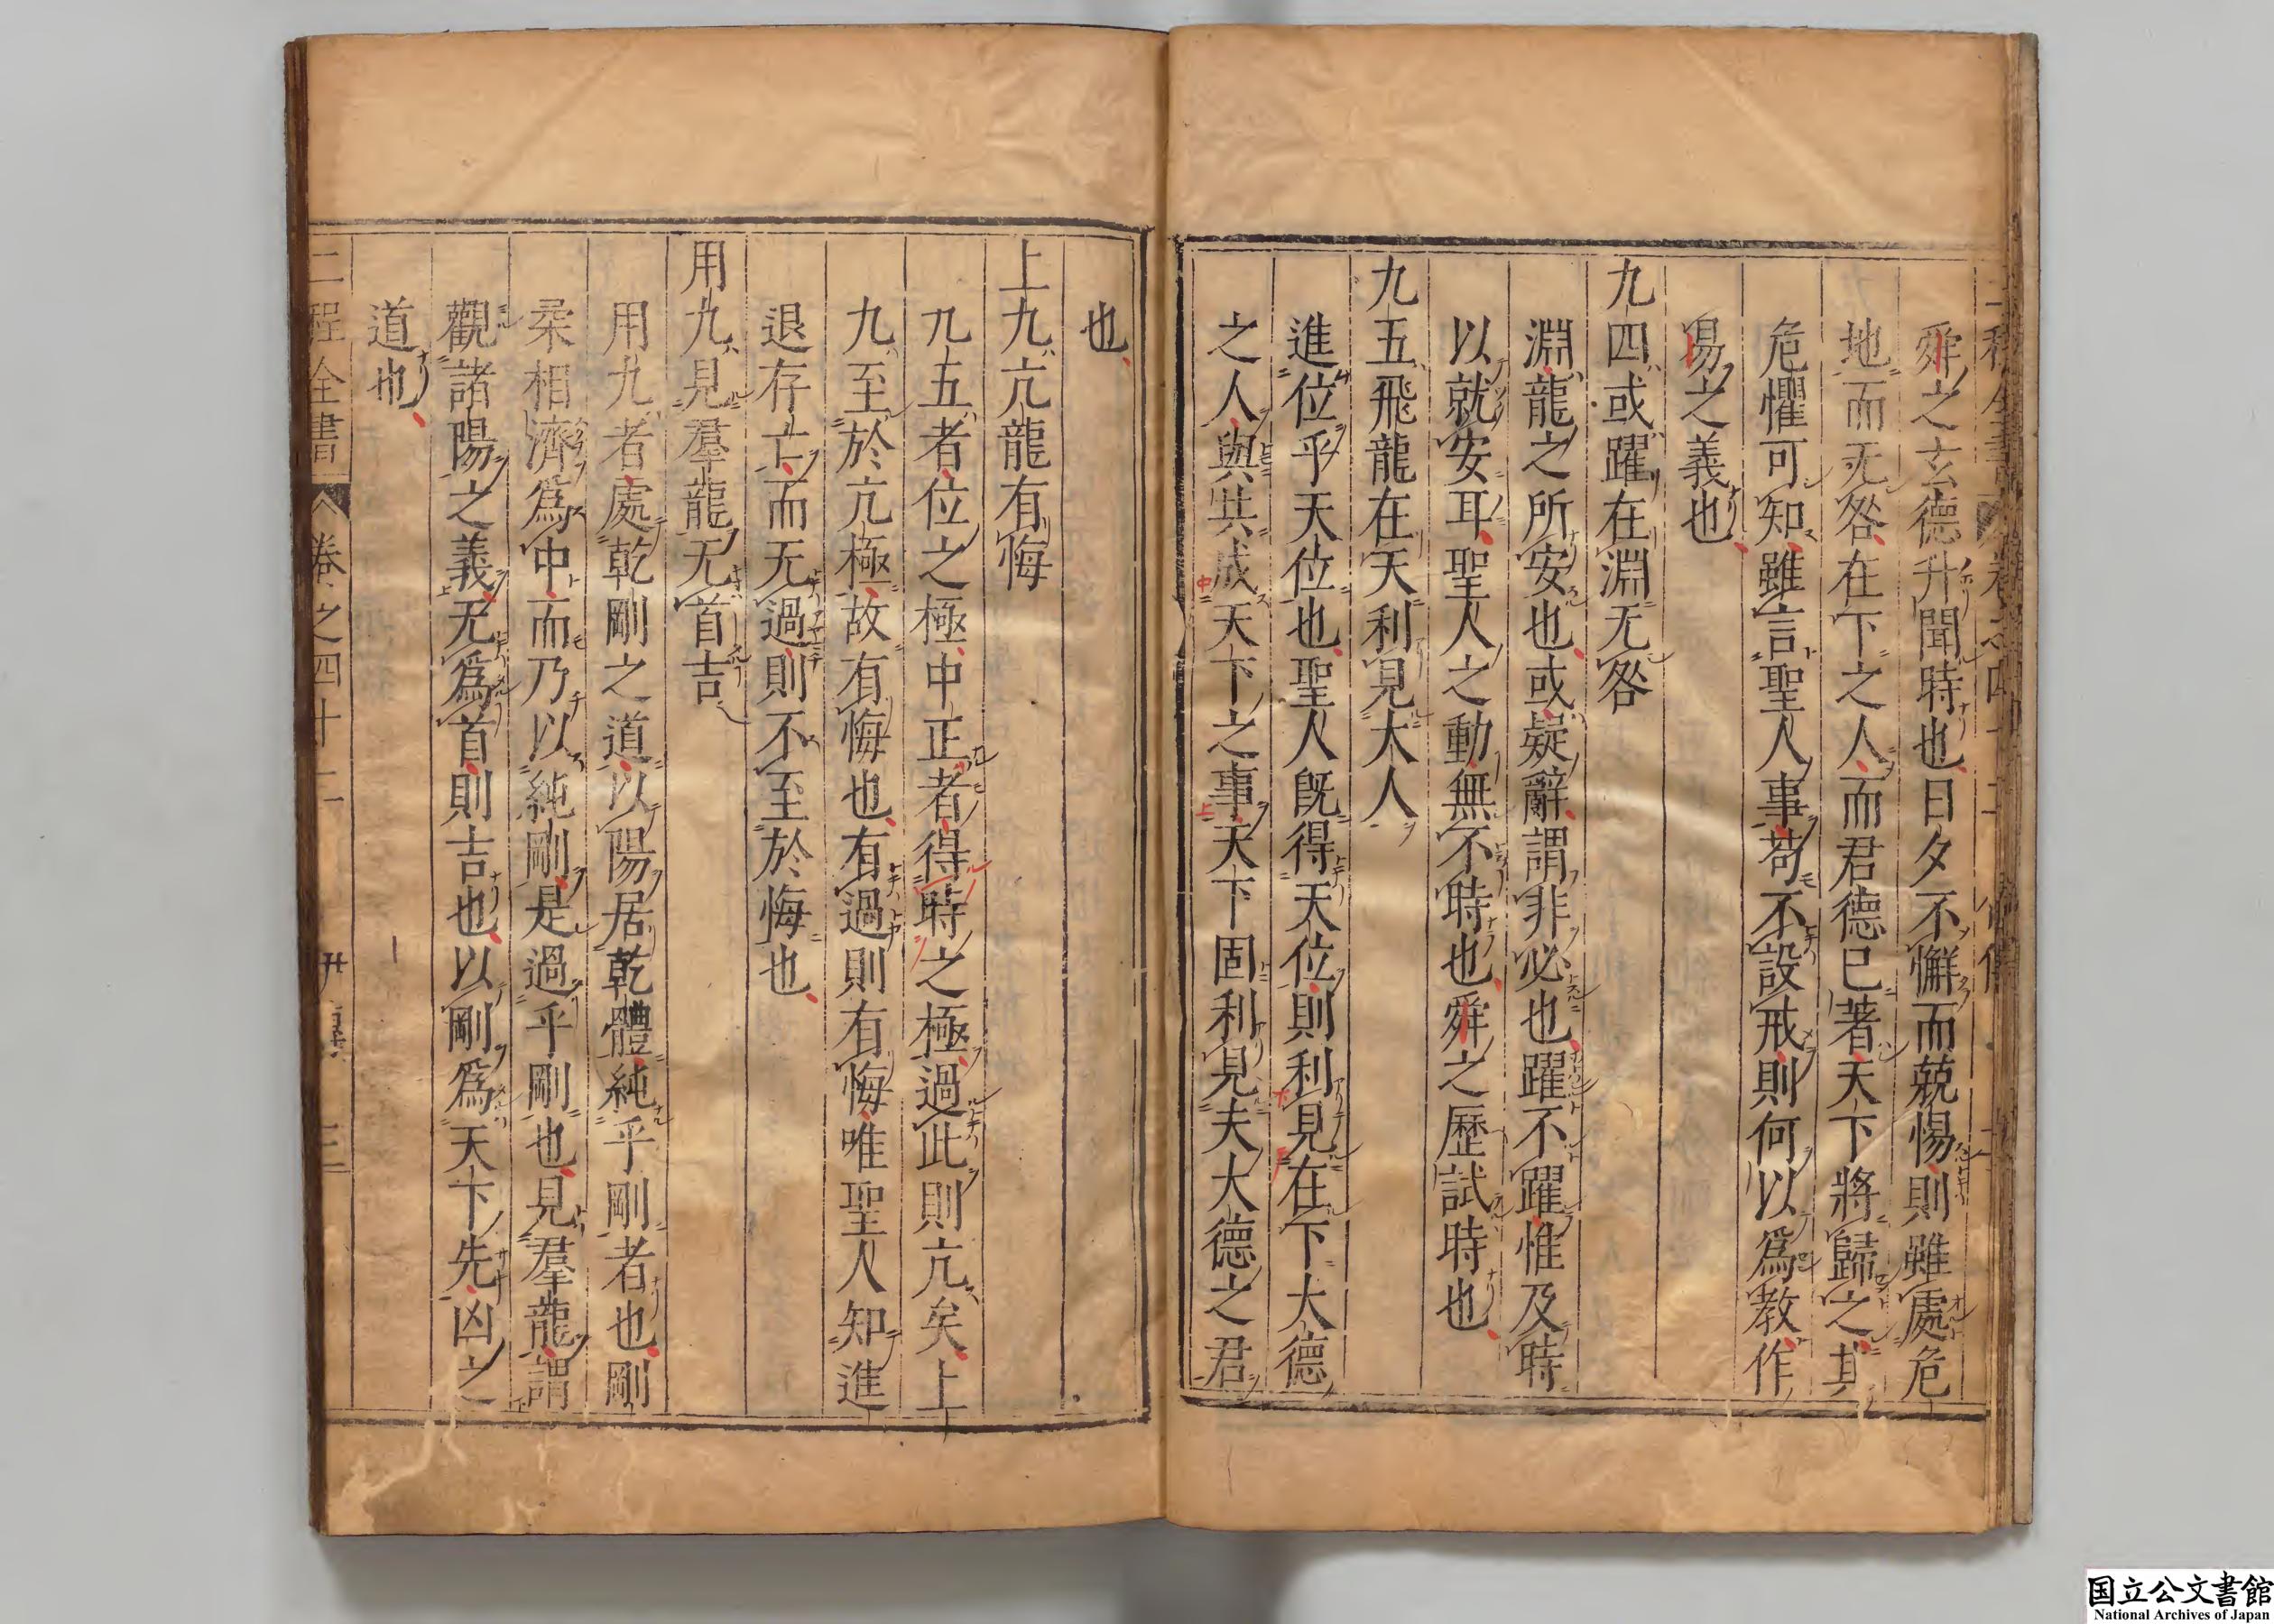 舜之玄德升聞時也日夕不懈而兢惕則雖處危
地而无咎在下之人而君德已著天下將歸之其
危懼可知雖言聖人事苟不設戒則何以爲教作
易之義也
九四或躍在淵无咎
淵龍之所安也或疑辭謂非必也躍不躍惟及時
以就安耳聖人之動無不時也舜之歷試時也
九五飛龍在天利見大人
進位乎天位也聖人旣得天位則利見在下大德
之人與共成天下之事天下固利見夫大德之君
也
上九亢龍有悔
九五者位之極中正者得時之極過此則亢矣上
九至於亢極故有悔也有過則有悔唯聖人知進
退存亡而无過則不至於悔也
用九見羣龍无首吉
用九者處乾剛之道以陽居乾體純乎剛者也剛
柔相濟爲中而乃以純剛是過乎剛也見羣龍謂
觀諸陽之義无爲首則吉也以剛爲天下先凶之
道也
二程全書 卷之四十二
国立公文書館
National Archives of Japan